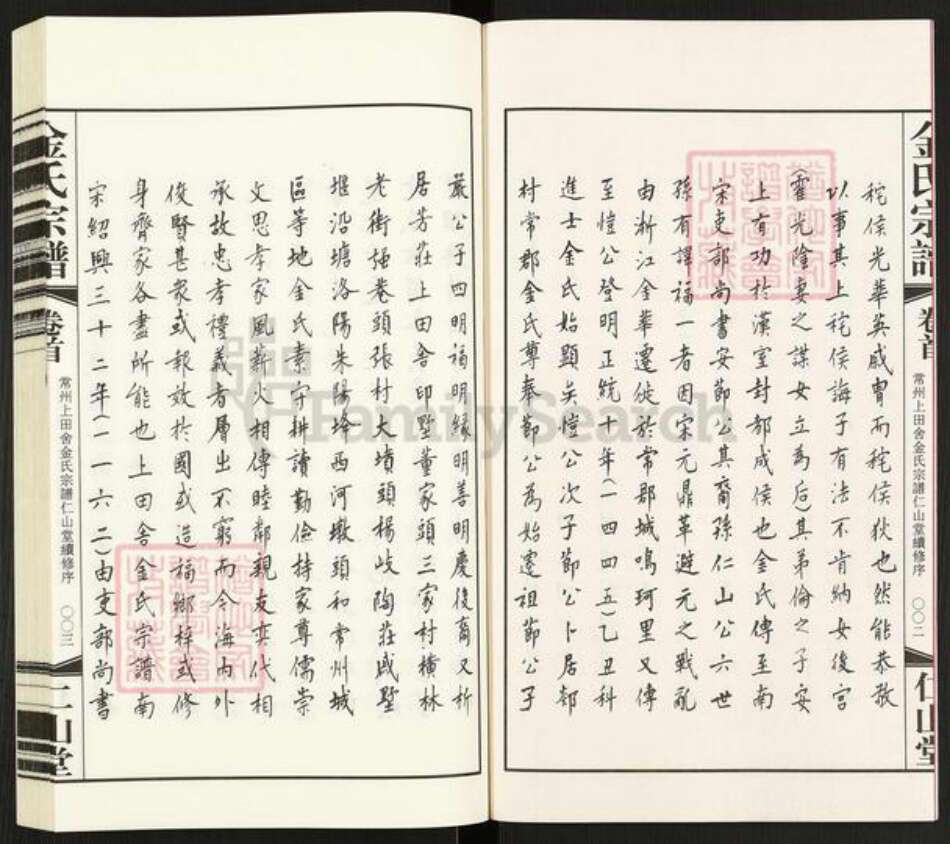 金氏宗譜
卷首
常州上田舍金氏宗譜仁山堂續修序
〇〇二
仁山堂
秺侯光華英威胄而秺侯狄也然能恭敬
以事其上秺侯誨子有法不肯納女後宮
霍光陰妻之謀女立為后)其弟倫之子安
上有功於漢室封都成侯也金氏傳至南
宋吏部尚書安節公其裔孫仁山公六世
孫有諱福一者因宋元鼎革避元之戰亂
由浙江金華遷徙於常郡城鳴珂里又傳
至愷公登明正統十年(一四四五)乙丑科
進士金氏始顯矣愷公次子節公卜居郊
村常郡金氏尊奉節公為始遷祖節公子
嚴公子四明福明緣明善明慶後裔又析
居芳莊上田舍印墅董家頭三家村橫林
老街強巷頭張村大墳頭楊岐陶莊戚墅
堰沿塘洛陽朱陽垎西河墩頭和常州城
區等地金氏素守耕讀勤儉持家尊儒崇
文思孝家風薪火相傳睦鄰親友其代相
承故忠孝禮義者層出不窮而今海內外
俊賢甚眾或報效於國或造福鄉梓或修
身齊家各盡所能也上田舍金氏宗譜南
宋紹興三十二年(一一六二)由吏部尚書
金氏宗譜
卷首
常州上田舍金氏宗譜仁山堂續修序
〇〇三
仁山堂
FamilySearch